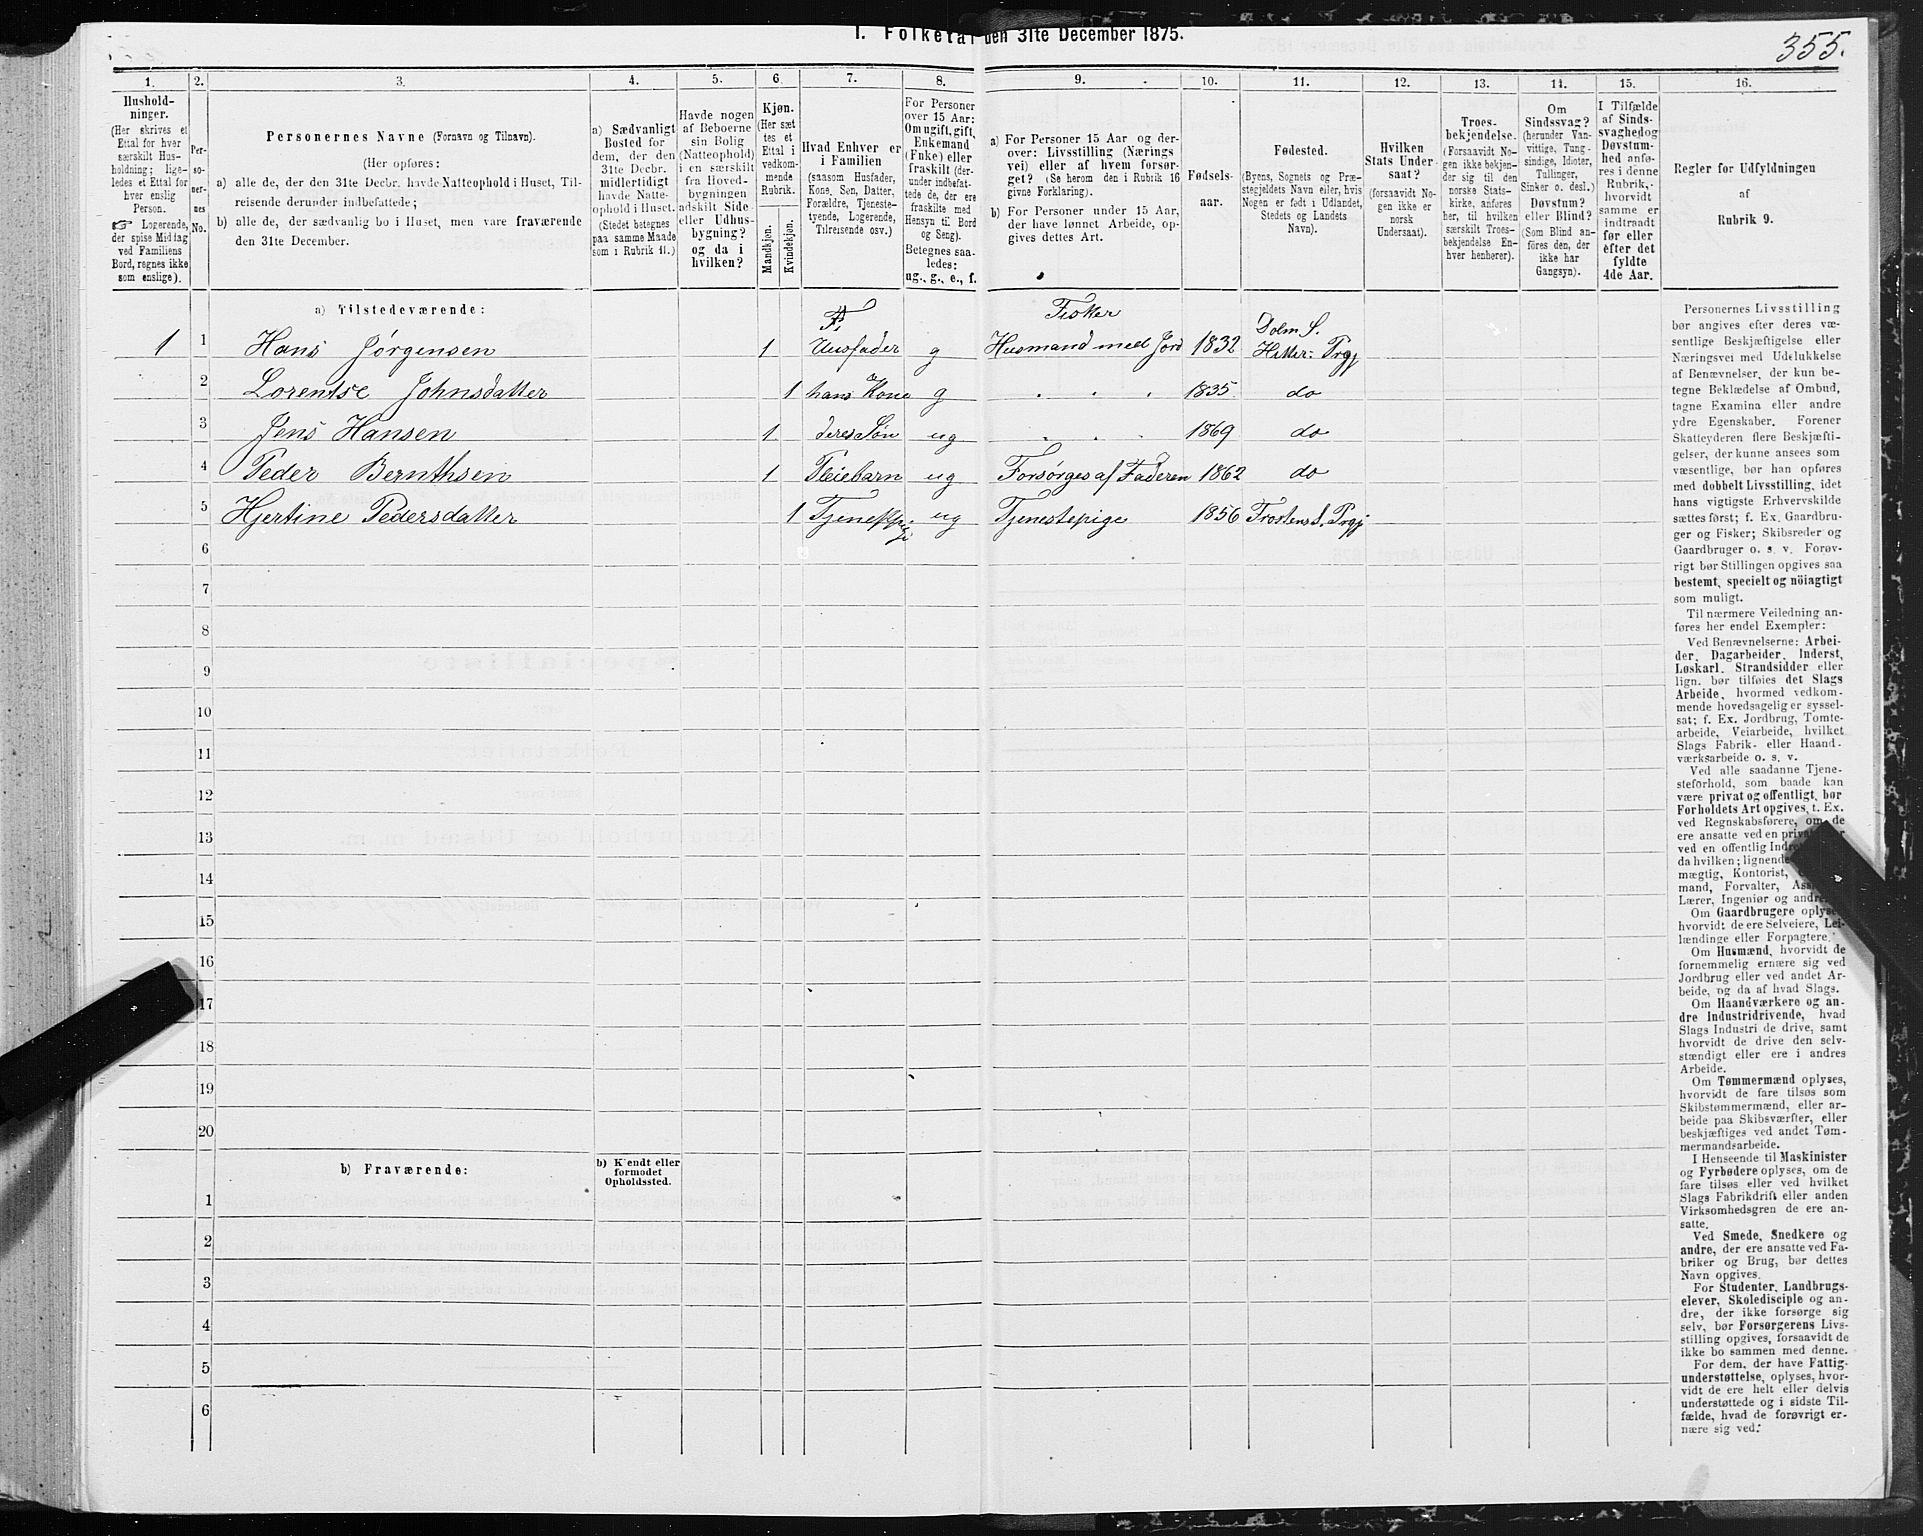 I. Folketal den 31te December 1875.
355.
1. 2. 3. 4. 5. 6. 7. 8. 9. 10. 11. 12. 13. 14. 15. 16.
Hushold-
ninger.
(Her skrives et
Ettal for hver
særskilt Hus-
holdning; lige-
ledes et Ettal for
hver enslig
Person.
☞ Logerende,
der spise Middag
ved Familiens
Bord, regnes ikke
som enslige).
Per-
so-
ner-
nes
No.
Personernes Navne (Fornavn og Tilnavn).
(Her opføres:
a) alle de, der den 31te Decbr. havde Natteophold i Huset, Til-
reisende derunder indbefattede;
b) alle de, der sædvanlig bo i Huset, men vare fraværende
den 31te December.
a) Sædvanligt
Bosted for
dem, der den
31te Decbr.
midlertidigt
havde Natte-
ophold i Huset.
(Stedet betegnes
paa samme Maade
som i Rubrik 11.)
Havde nogen
af Beboerne
sin Bolig
(Natteophold)
i en særskilt
fra Hoved-
bygningen
adskilt Side-
eller Udhus-
bygning?
og da i
hvilken?
Kjøn.
(Her sæt
tes et
Ettal i
vedkom-
mende
Rubrik.
Mandkjøn.
Kvindekjøn.
Hvad Enhver er
i Familien
(saasom Husfader,
Kone, Søn, Datter,
Forældre, Tjeneste-
tyende, Logerende,
Tilreisende osv.)
For Personer
over 15 Aar:
Om ugift, gift,
Enkemand
(Enke) eller
fraskilt (der-
under indbefat-
tede de, der ere
fraskilte med
Hensyn til Bord
og Seng).
Betegnes saa-
ledes:
ug., g., e., f.
a) For Personer 15 Aar og der-
over: Livsstilling (Nærings
vei) eller af hvem forsør-
get? (Se herom den i Rubrik 16
givne Forklaring).
b) For Personer under 15 Aar,
der have lønnet Arbeide, op-
gives dettes Art.
Fødsels-
aar.
Fødested.
(Byens, Sognets og Præ-
stegjeldets Navn eller, hvis
Nogen er født i Udlandet,
Stedets og Landets
Navn).
Hvilken
Stats Under-
saat?
(forsaavidt No-
gen ikke er
norsk
Undersaat).
Troes-
bekjendelse.
(Forsaavidt No-
gen ikke bekjen-
der sig til den
norske Stats-
kirke, anføres
her, til hvilken
særskilt Troes-
bekjendelse En-
hver henhører).
Om
Sindssvag?
(herunder Van-
vittige, Tung-
sindige, Idioter,
Tullinger,
Sinker o. desl.)
Døvstum?
eller Blind?
(Som Blind an-
føres den, der
ikke har
Gangsyn).
I Tilfælde
af Sinds-
svaghed og
Døvstum-
hed anfø-
res i denne
Rubrik,
hvorvidt
samme er
indtraadt
før eller
efter det
fyldte
4de Aar.
Regler for Udfyldningen
af
Rubrik 9.
a) Tilstedeværende:
Fisker
1 1 Hans Jørgensen 1 Huusfader g Husmand med Jord 1832 Dolm S. Hitter: Prgj
2 Lorentse Johnsdatter 1 hans Kone g 1835. do
3 Jens Hansen 1 deres Søn ug 1869 do
4 Peder Bernthsen 1 Pleiebarn ug Forsørges af Faderen 1862 do
5 Hjertine Pedersdatter 1 Tjenestepige ug Tjenestepige 1856 Frostens S. Prgj
6
7
8
9
10
11
12
13
14
15
16
17
18
19
20
b) Fraværende:
b) Kjendt eller
formodet
Opholdssted.
1
2
3
4
5
6
Personernes Livsstilling
bør angives efter deres væ-
sentlige Beskjæftigelse eller
Næringsvei med Udelukkelse
af Benævnelser, der kun be-
tegne Beklædelse af Ombud,
tagne Examina eller andre
ydre Egenskaber. Forener
Skatteyderen flere Beskjæfti-
gelser, der kunne ansees som
væsentlige, bør han opføres
med dobbelt Livsstilling, idet
hans vigtigste Erhvervskilde
sættes først; f. Ex. Gaardbru-
ger og Fisker; Skibsreder og
Gaardbruger o. s. v. Forøv-
rigt bør Stillingen opgives saa
bestemt, specielt og nøiagtigt
som muligt.
Til nærmere Veiledning an-
føres her endel Exempler:
Ved Benævnelserne: Arbei-
der, Dagarbeider, Inderst,
Løskarl, Strandsidder eller
lign. bør tilføies det Slags
Arbeide, hvormed vedkom-
mende hovedsagelig er syssel-
sat; f. Ex. Jordbrug, Tomte-
arbeide, Veiarbeide, hvilket
Slags Fabrik- eller Haand-
værksarbeide o. s. v.
Ved alle saadanne Tjene-
steforhold, som baade kan
være privat og offentligt, bør
Forholdets Art opgives, t. Ex.
ved Regnskabsførere, om de
ere ansatte ved en privat
ved en offentlig
da hvilken; lignende
mægtig, Kontorist,
mand, Forvalter,
Lærer, Ingeniør og andre.
Om Gaardbrugere oplyses,
hvorvidt de ere Selveiere, Lei-
lændinge eller Forpagtere.
Om Husmænd, hvorvidt de
fornemmelig ernære sig ved
Jordbrug eller ved andet Ar-
beide, og da af hvad Slags.
Om Haandværkere og an-
dre Industridrivende, hvad
Slags Industri de drive, samt
hvorvidt de drive den selv-
stændigt eller ere i andres
Arbeide.
Om Tømmermænd oplyses,
hvorvidt de fare tilsøs som
Skibstømmermænd, eller ar-
beide paa Skibsværfter, eller
beskjæftiges ved andet Tøm-
mermandsarbeide.
I Henseende til Maskinister
og Fyrbødere oplyses, om de
fare tilsøs eller ved hvilket
Slags Fabrikdrift eller anden
Virksomhedsgren de ere an-
satte.
Ved Smede, Snedkere og
andre, der ere ansatte ved Fa-
briker og Brug, bør dettes
Navn opgives.
For Studenter, Landbrugs-
elever, Skoledisciple og an-
dre, der ikke forsørge sig
selv, bør Forsørgerens Livs-
stilling opgives, forsaavidt de
ikke bo sammen med denne.
For dem, der have Fattig-
understøttelse, oplyses, hvor-
vidt de ere helt eller delvis
understøttede og i sidste Til-
fælde, hvad de forøvrigt er-
nære sig ved.